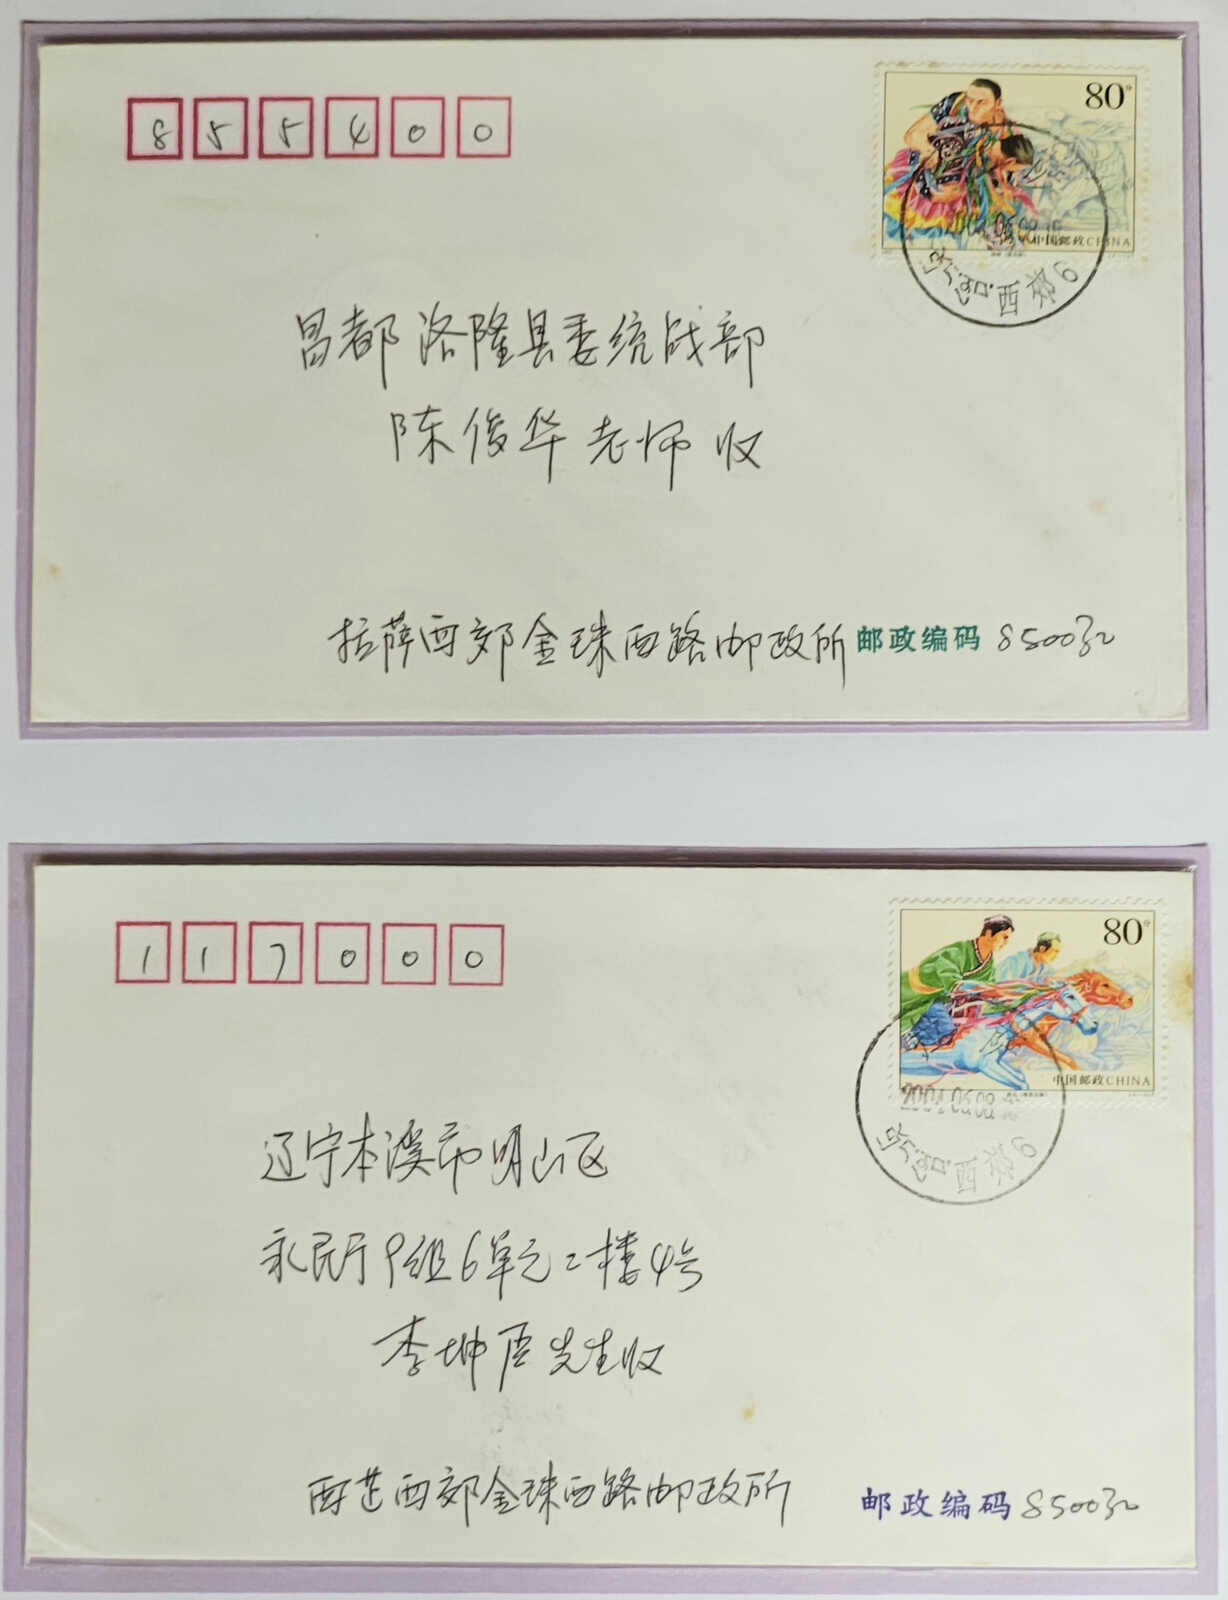 855400
80分
中国邮政CHINA
西郊6
昌都洛隆县委统战部
陈俊华老师收
拉萨西郊金珠西路邮政所 邮政编码 850032
117000
80分
中国邮政CHINA
西郊6
辽宁本溪市明山区
永民厅9组6单元二楼4号
李坤 先生收
西郊金珠西路邮政所 邮政编码 850032